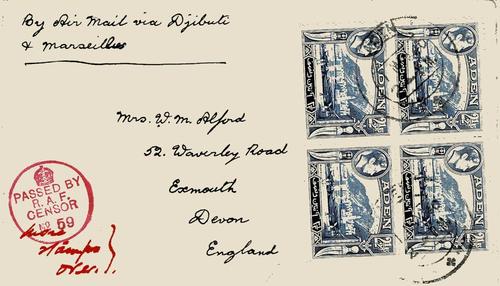 By Air Mail via Djibuti
& Marseilles
Mrs. W. M. Alford
52. Waverley Road
Exmouth
Devon
England
PASSED BY
R.A.F.
CENSOR
No 59
more
stamps
over.
ADEN
ADEN
ADEN
ADEN